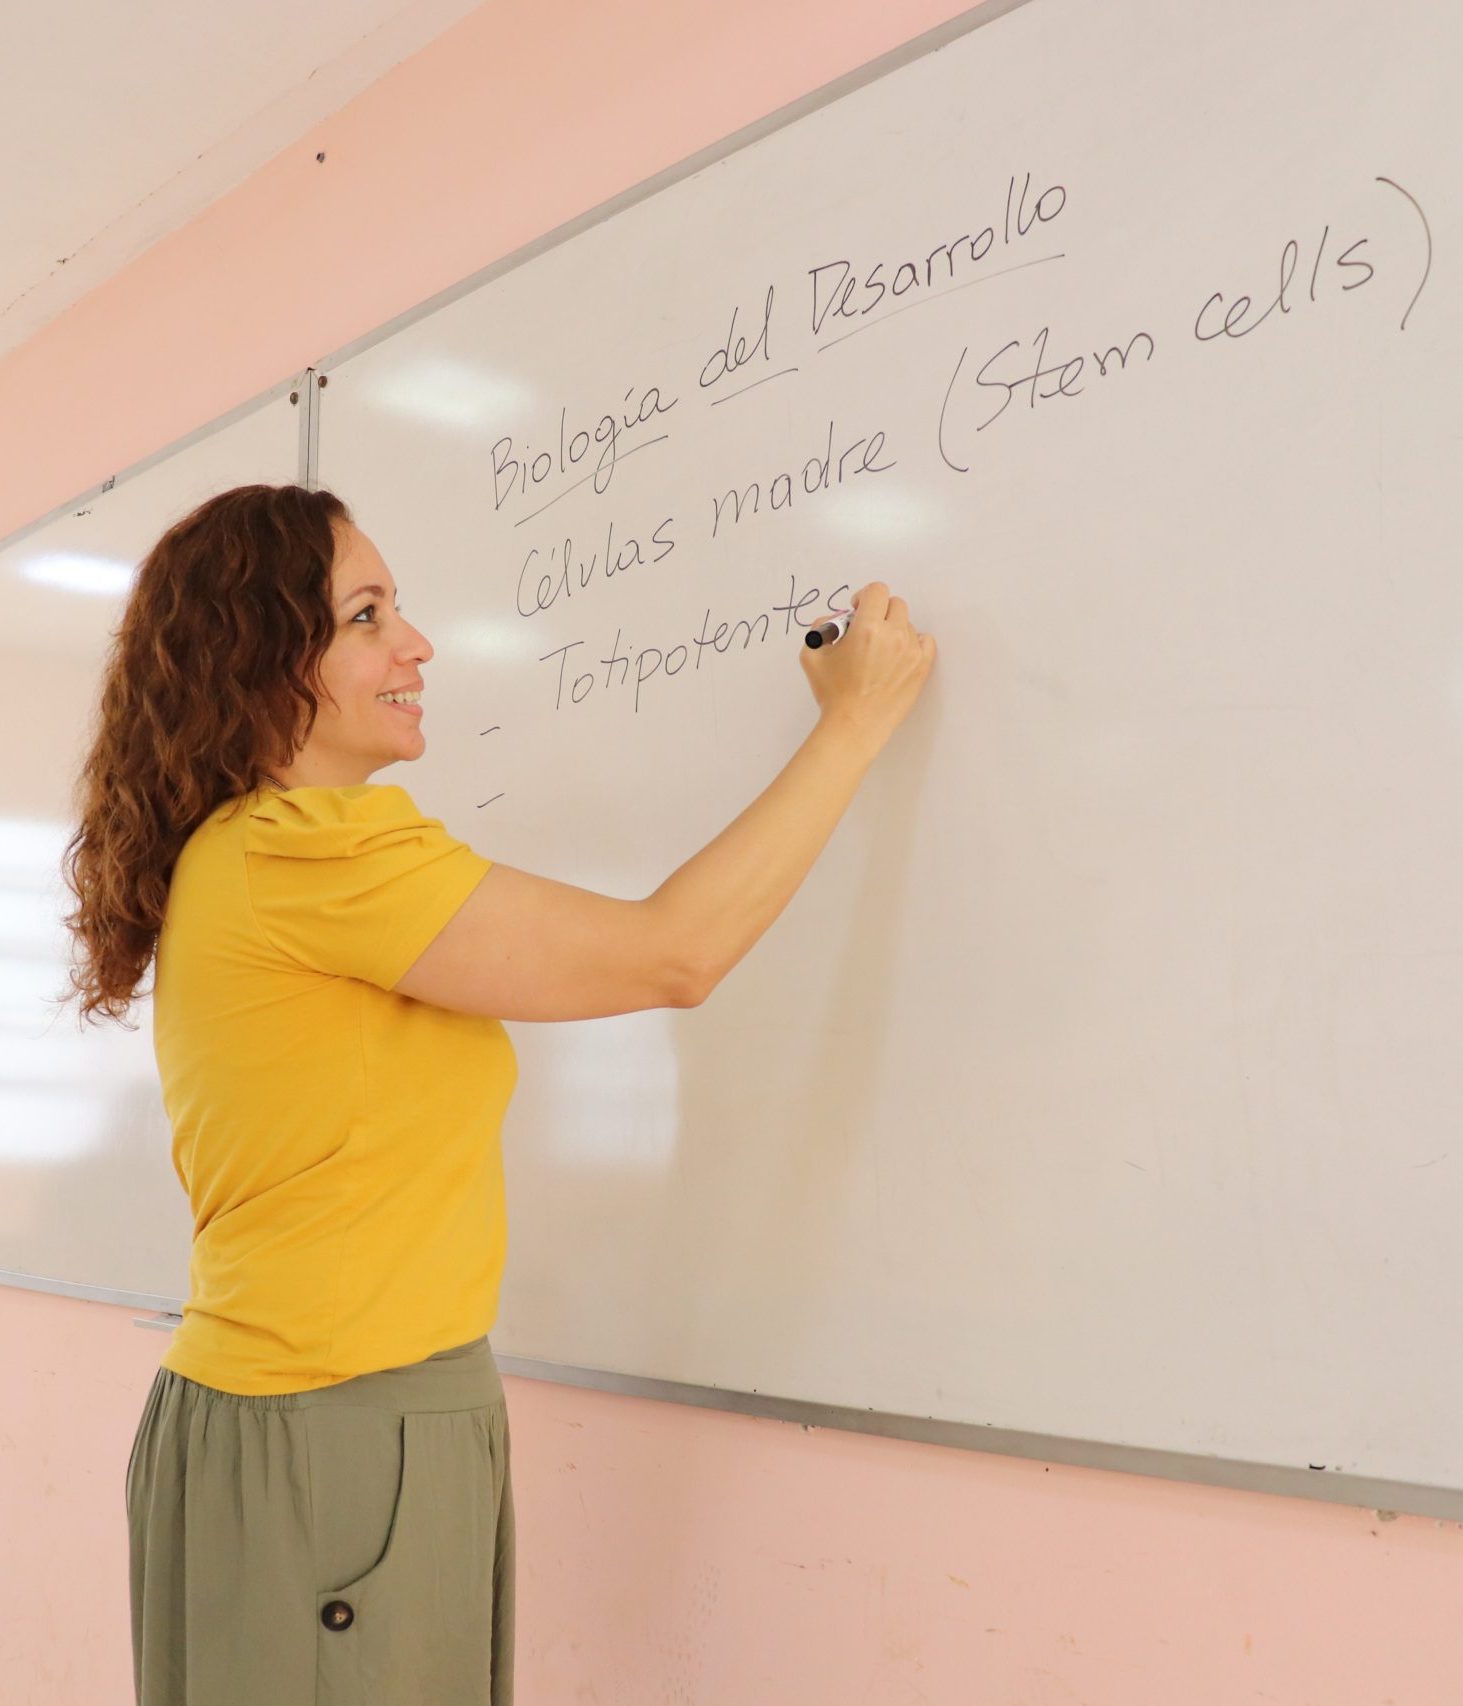 Biología del Desarrollo
Células madre (Stem cells)
- Totipotentes
-